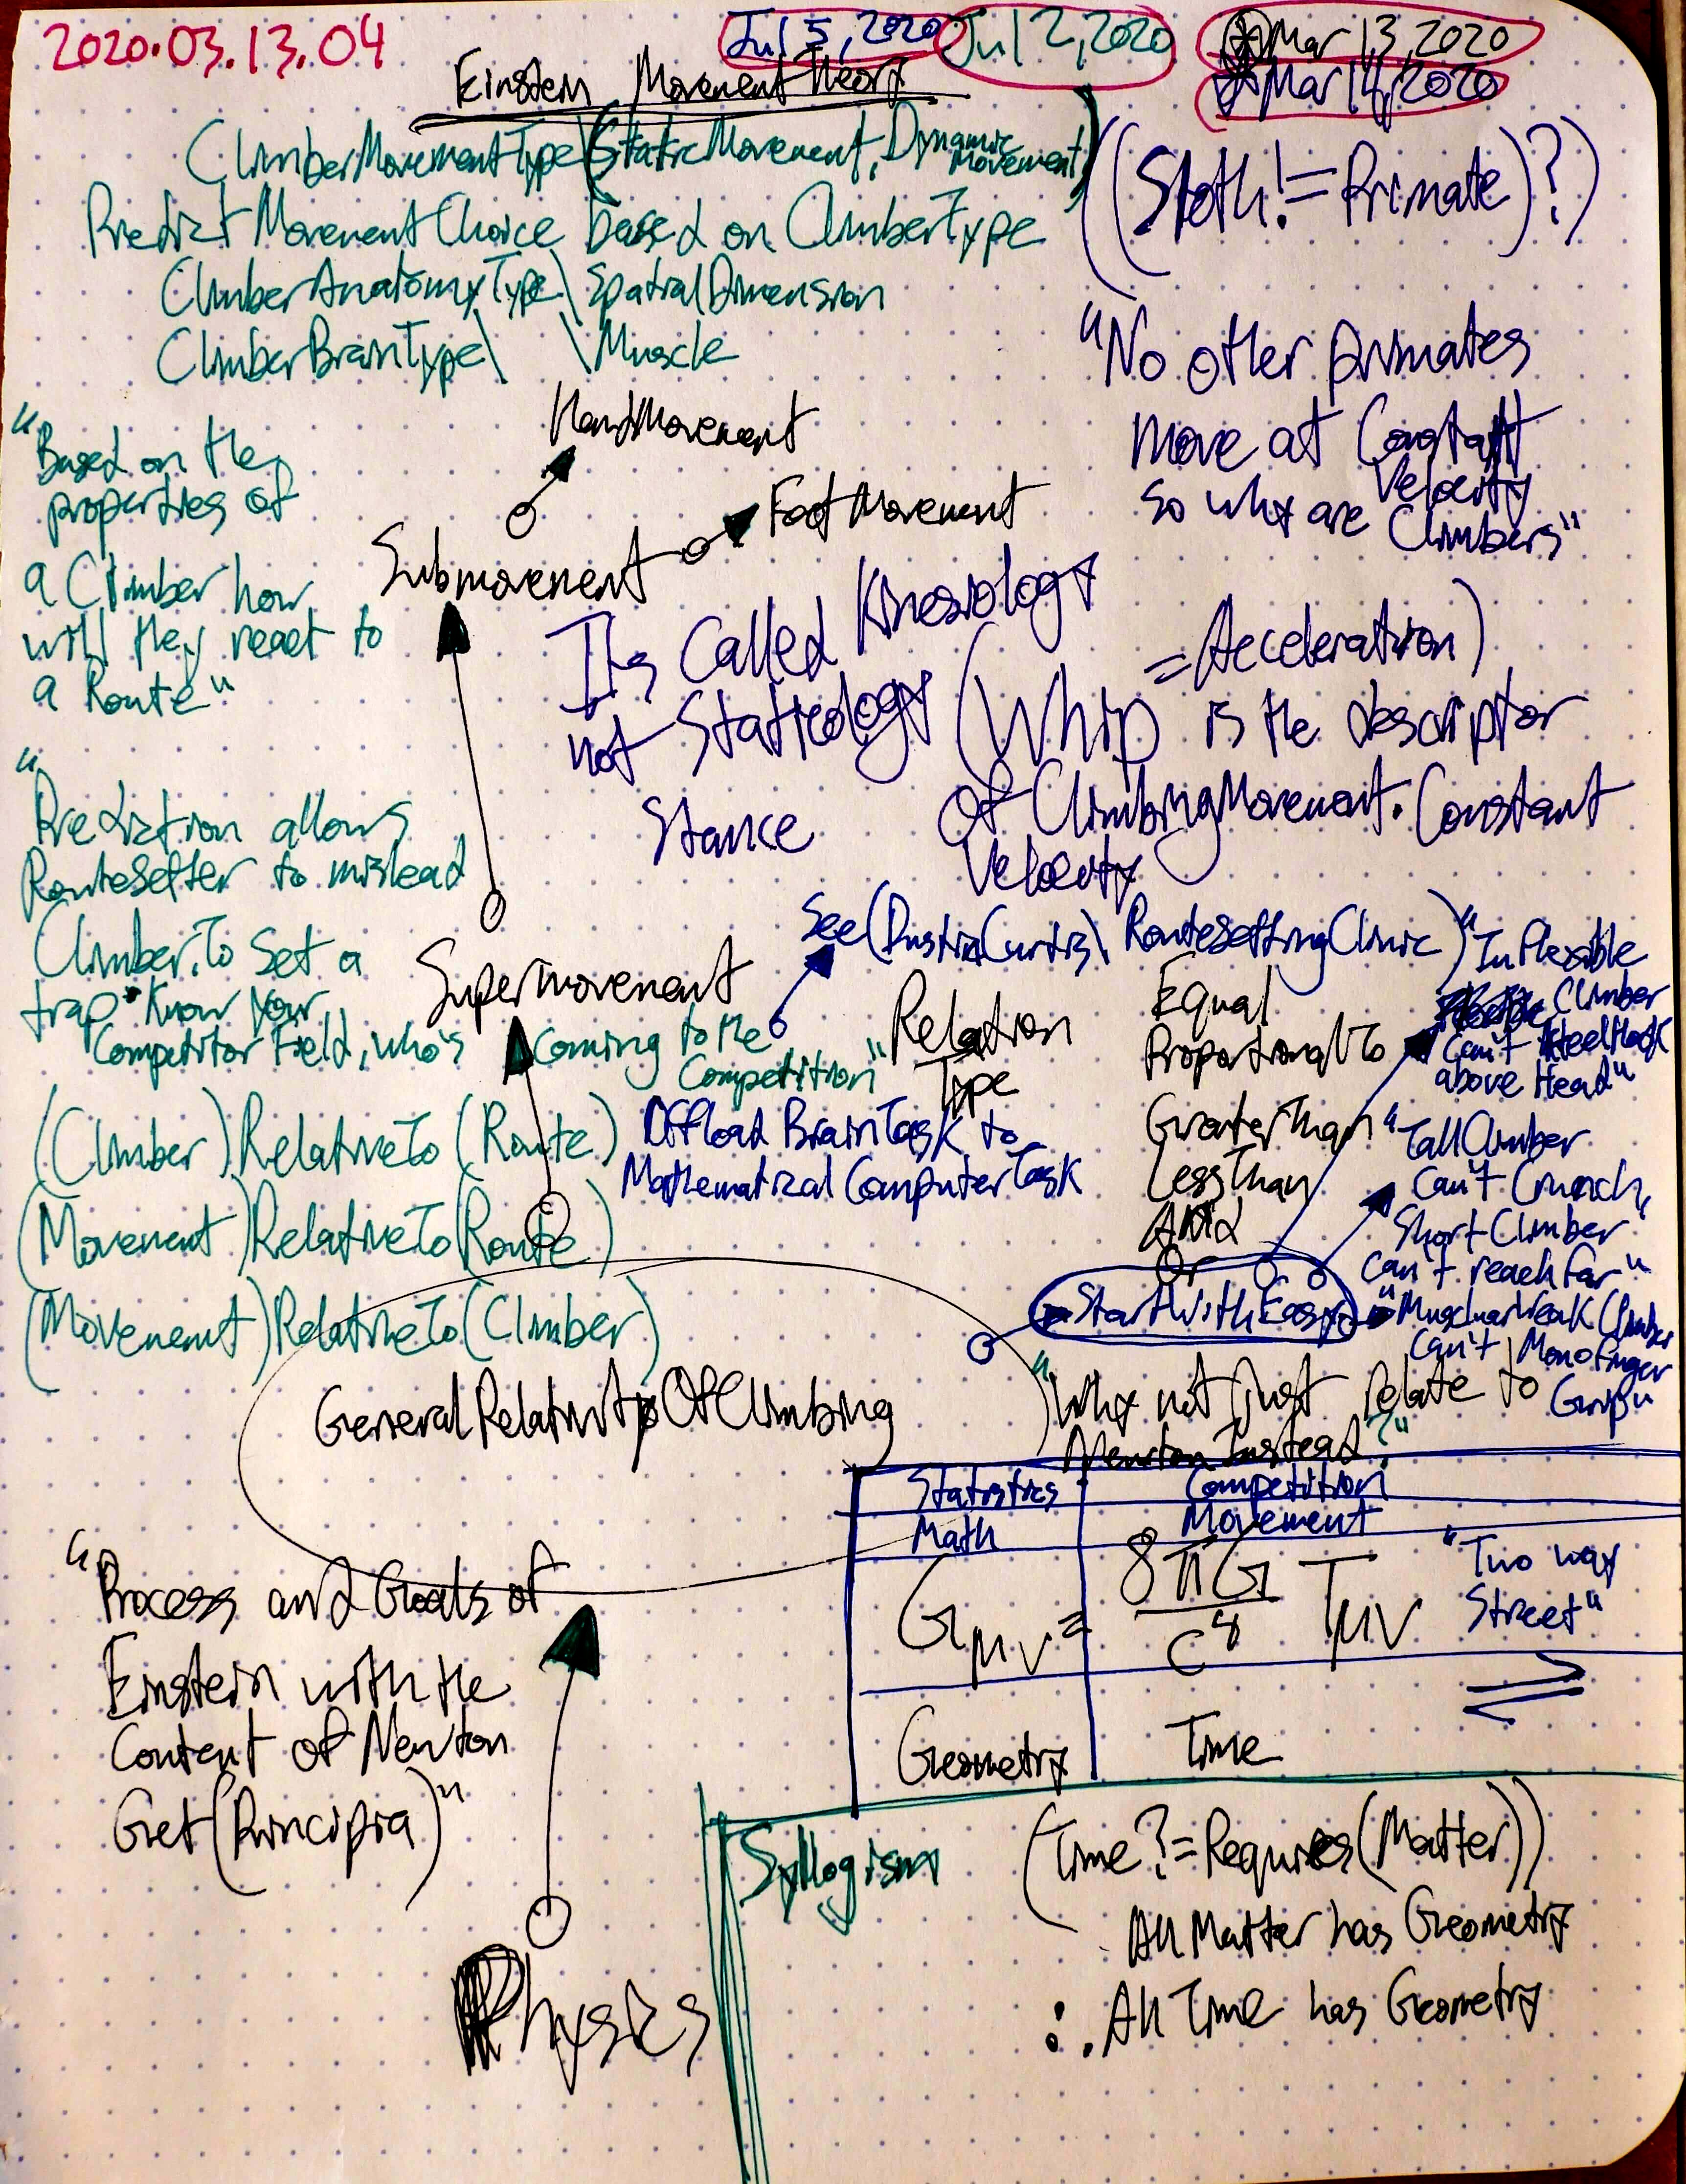 2020.03.13.04
Jul 5, 2020
Jul 2, 2020
Mar 13, 2020
Mar 14, 2020
Einstein Movement Theory
ClimberMovementType\(StaticMovement, Dynamic Movement)
Predict MovementChoice based on ClimberType
ClimberAnatomyType\SpatialDimension
ClimberBrainType\ \Muscle
((Sloth != Primate)?)
"No other primates
move at Constant
Velocity
so why are Climbers"
HandMovement
FootMovement
Submovement
"Based on the
properties of
a Climber how
will they react to
a Route"
Its Called Kinesiology
not Staticology
Stance
(Whip = Acceleration)
is the descriptor
of ClimbingMovement. Constant
Velocity
"Prediction allows
RouteSetter to mislead
Climber. To Set a
trap "Know your
Competitor Field, who's
Coming to the
Competition"
See(DustinCurtis\RouteSettingClinic)
Supermovement
Relation
Type
Equal
ProportionalTo
GreaterThan
LessThan
And
Or
"Inflexible
Climber
Can't HeelHook
above Head"
"TallClimber
Can't Crunch,
ShortClimber
Can't reach far"
"MuscularWeak Climber
Can't MonoFinger
Grip"
(Climber)RelativeTo(Route)
(Movement)RelativeTo(Route)
(Movement)RelativeTo(Climber)
Offload BrainTask to
Mathematical ComputerTask
StartWithEasy
GeneralRelativityOfClimbing
"Why not just relate to
Newton Instead?"
Statistics Competition
Math Movement
Gμν = 8πG/c⁴ Tμν
"Two way
Street"
Geometry Time
"Process and Goals of
Einstein with the
Content of Newton
Get(Principia)"
Physics
Syllogism
(Time ?= Requires(Matter))
All Matter has Geometry
∴ All Time has Geometry